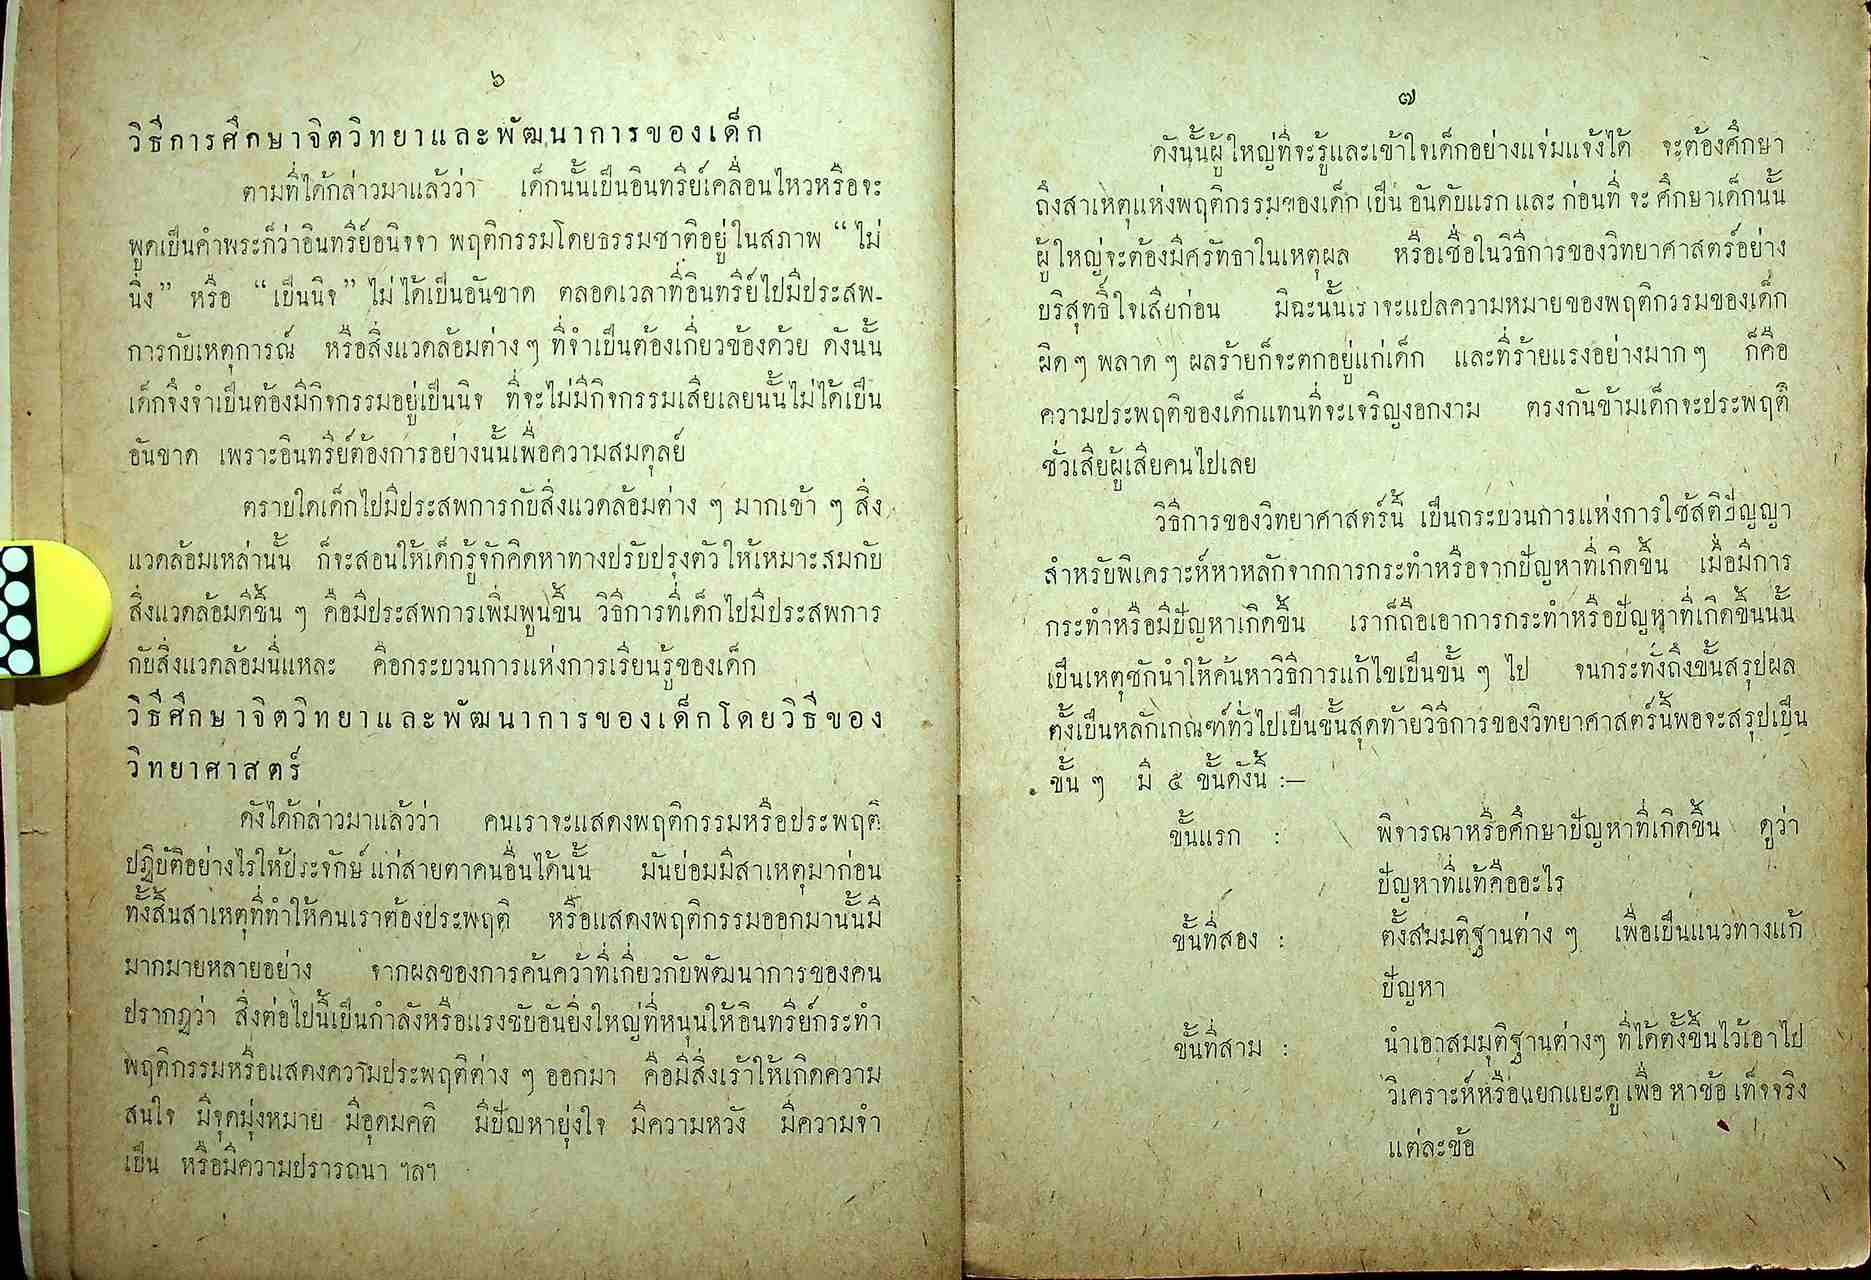 ๖
วิธีการศึกษาจิตวิทยาและพัฒนาการของเด็ก
ตามที่ได้กล่าวมาแล้วว่า เด็กนั้นเป็นอินทรีย์เคลื่อนไหวหรือจะ
พูดเป็นคำพระก็ว่าอินทรีย์อนิจจา พฤติกรรมโดยธรรมชาติอยู่ในสภาพ “ ไม่
นิ่ง” หรือ “เป็นนิจ” ไม่ได้เป็นอันขาด ตลอดเวลาที่อินทรีย์ไปมีประสพ-
การกับเหตุการณ์ หรือสิ่งแวดล้อมต่าง ๆ ที่จำเป็นต้องเกี่ยวข้องด้วย ดังนั้น
เด็กจึงจำเป็นต้องมีกิจกรรมอยู่เป็นนิจ ที่จะไม่มีกิจกรรมเสียเลยนั้นไม่ได้เป็น
อันขาด เพราะอินทรีย์ต้องการอย่างนั้นเพื่อความสมดุลย์
ตราบใดเด็กไปมีประสพการกับสิ่งแวดล้อมต่าง ๆ มากเข้า ๆ สิ่ง
แวดล้อมเหล่านั้น ก็จะสอนให้เด็กรู้จักคิดหาทางปรับปรุงตัวให้เหมาะสมกับ
สิ่งแวดล้อมดีขึ้น ๆ คือมีประสพการเพิ่มพูนขึ้น วิธีการที่เด็กไปมีประสพการ
กับสิ่งแวดล้อมนี่แหละ คือกระบวนการแห่งการเรียนรู้ของเด็ก
วิธีศึกษาจิตวิทยาและพัฒนาการของเด็กโดยวิธีของ
วิทยาศาสตร์
ดังได้กล่าวมาแล้วว่า คนเราจะแสดงพฤติกรรมหรือประพฤติ
ปฏิบัติอย่างไรให้ประจักษ์แก่สายตาคนอื่นได้นั้น มันย่อมมีสาเหตุมาก่อน
ทั้งสิ้นสาเหตุที่ทำให้คนเราต้องประพฤติ หรือแสดงพฤติกรรมออกมานั้นมี
มากมายหลายอย่าง จากผลของการค้นคว้าที่เกี่ยวกับพัฒนาการของคน
ปรากฏว่า สิ่งต่อไปนี้เป็นกำลังหรือแรงขับอันยิ่งใหญ่ที่หนุนให้อินทรีย์กระทำ
พฤติกรรมหรือแสดงความประพฤติต่าง ๆ ออกมา คือมีสิ่งเร้าให้เกิดความ
สนใจ มีจุดมุ่งหมาย มีอุดมคติ มีปัญหายุ่งใจ มีความหวัง มีความจำ
เป็น หรือมีความปรารถนา ฯลฯ
๗
ดังนั้นผู้ใหญ่ที่จะรู้และเข้าใจเด็กอย่างแจ่มแจ้งได้ จะต้องศึกษา
ถึงสาเหตุแห่งพฤติกรรมของเด็ก เป็น อันดับแรก และ ก่อนที่ จะ ศึกษาเด็กนั้น
ผู้ใหญ่จะต้องมีศรัทธาในเหตุผล หรือเชื่อในวิธีการของวิทยาศาสตร์อย่าง
บริสุทธิ์ใจเสียก่อน มิฉะนั้นเราจะแปลความหมายของพฤติกรรมของเด็ก
ผิด ๆ พลาด ๆ ผลร้ายก็จะตกอยู่แก่เด็ก และที่ร้ายแรงอย่างมาก ๆ ก็คือ
ความประพฤติของเด็กแทนที่จะเจริญงอกงาม ตรงกันข้ามเด็กจะประพฤติ
ชั่วเสียผู้เสียคนไปเลย
วิธีการของวิทยาศาสตร์นี้ เป็นกระบวนการแห่งการใช้สติปัญญา
สำหรับพิเคราะห์หาหลักจากการกระทำหรือจากปัญหาที่เกิดขึ้น เมื่อมีการ
กระทำหรือมีปัญหาเกิดขึ้น เราก็ถือเอาการกระทำหรือปัญหาที่เกิดขึ้นนั้น
เป็นเหตุชักนำให้ค้นหาวิธีการแก้ไขเป็นขั้น ๆ ไป จนกระทั่งถึงขั้นสรุปผล
ตั้งเป็นหลักเกณฑ์ทั่วไปเป็นขั้นสุดท้ายวิธีการของวิทยาศาสตร์นี้พอจะสรุปเป็น
ขั้น ๆ มี ๕ ขั้นดังนี้ :—
ขั้นแรก : พิจารณาหรือศึกษาปัญหาที่เกิดขึ้น ดูว่า
ปัญหาที่แท้คืออะไร
ขั้นที่สอง : ตั้งสมมติฐานต่าง ๆ เพื่อเป็นแนวทางแก้
ปัญหา
ขั้นที่สาม : นำเอาสมมุติฐานต่างๆ ที่ได้ตั้งขึ้นไว้เอาไป
วิเคราะห์หรือแยกแยะดู เพื่อ หาข้อ เท็จจริง
แต่ละข้อ